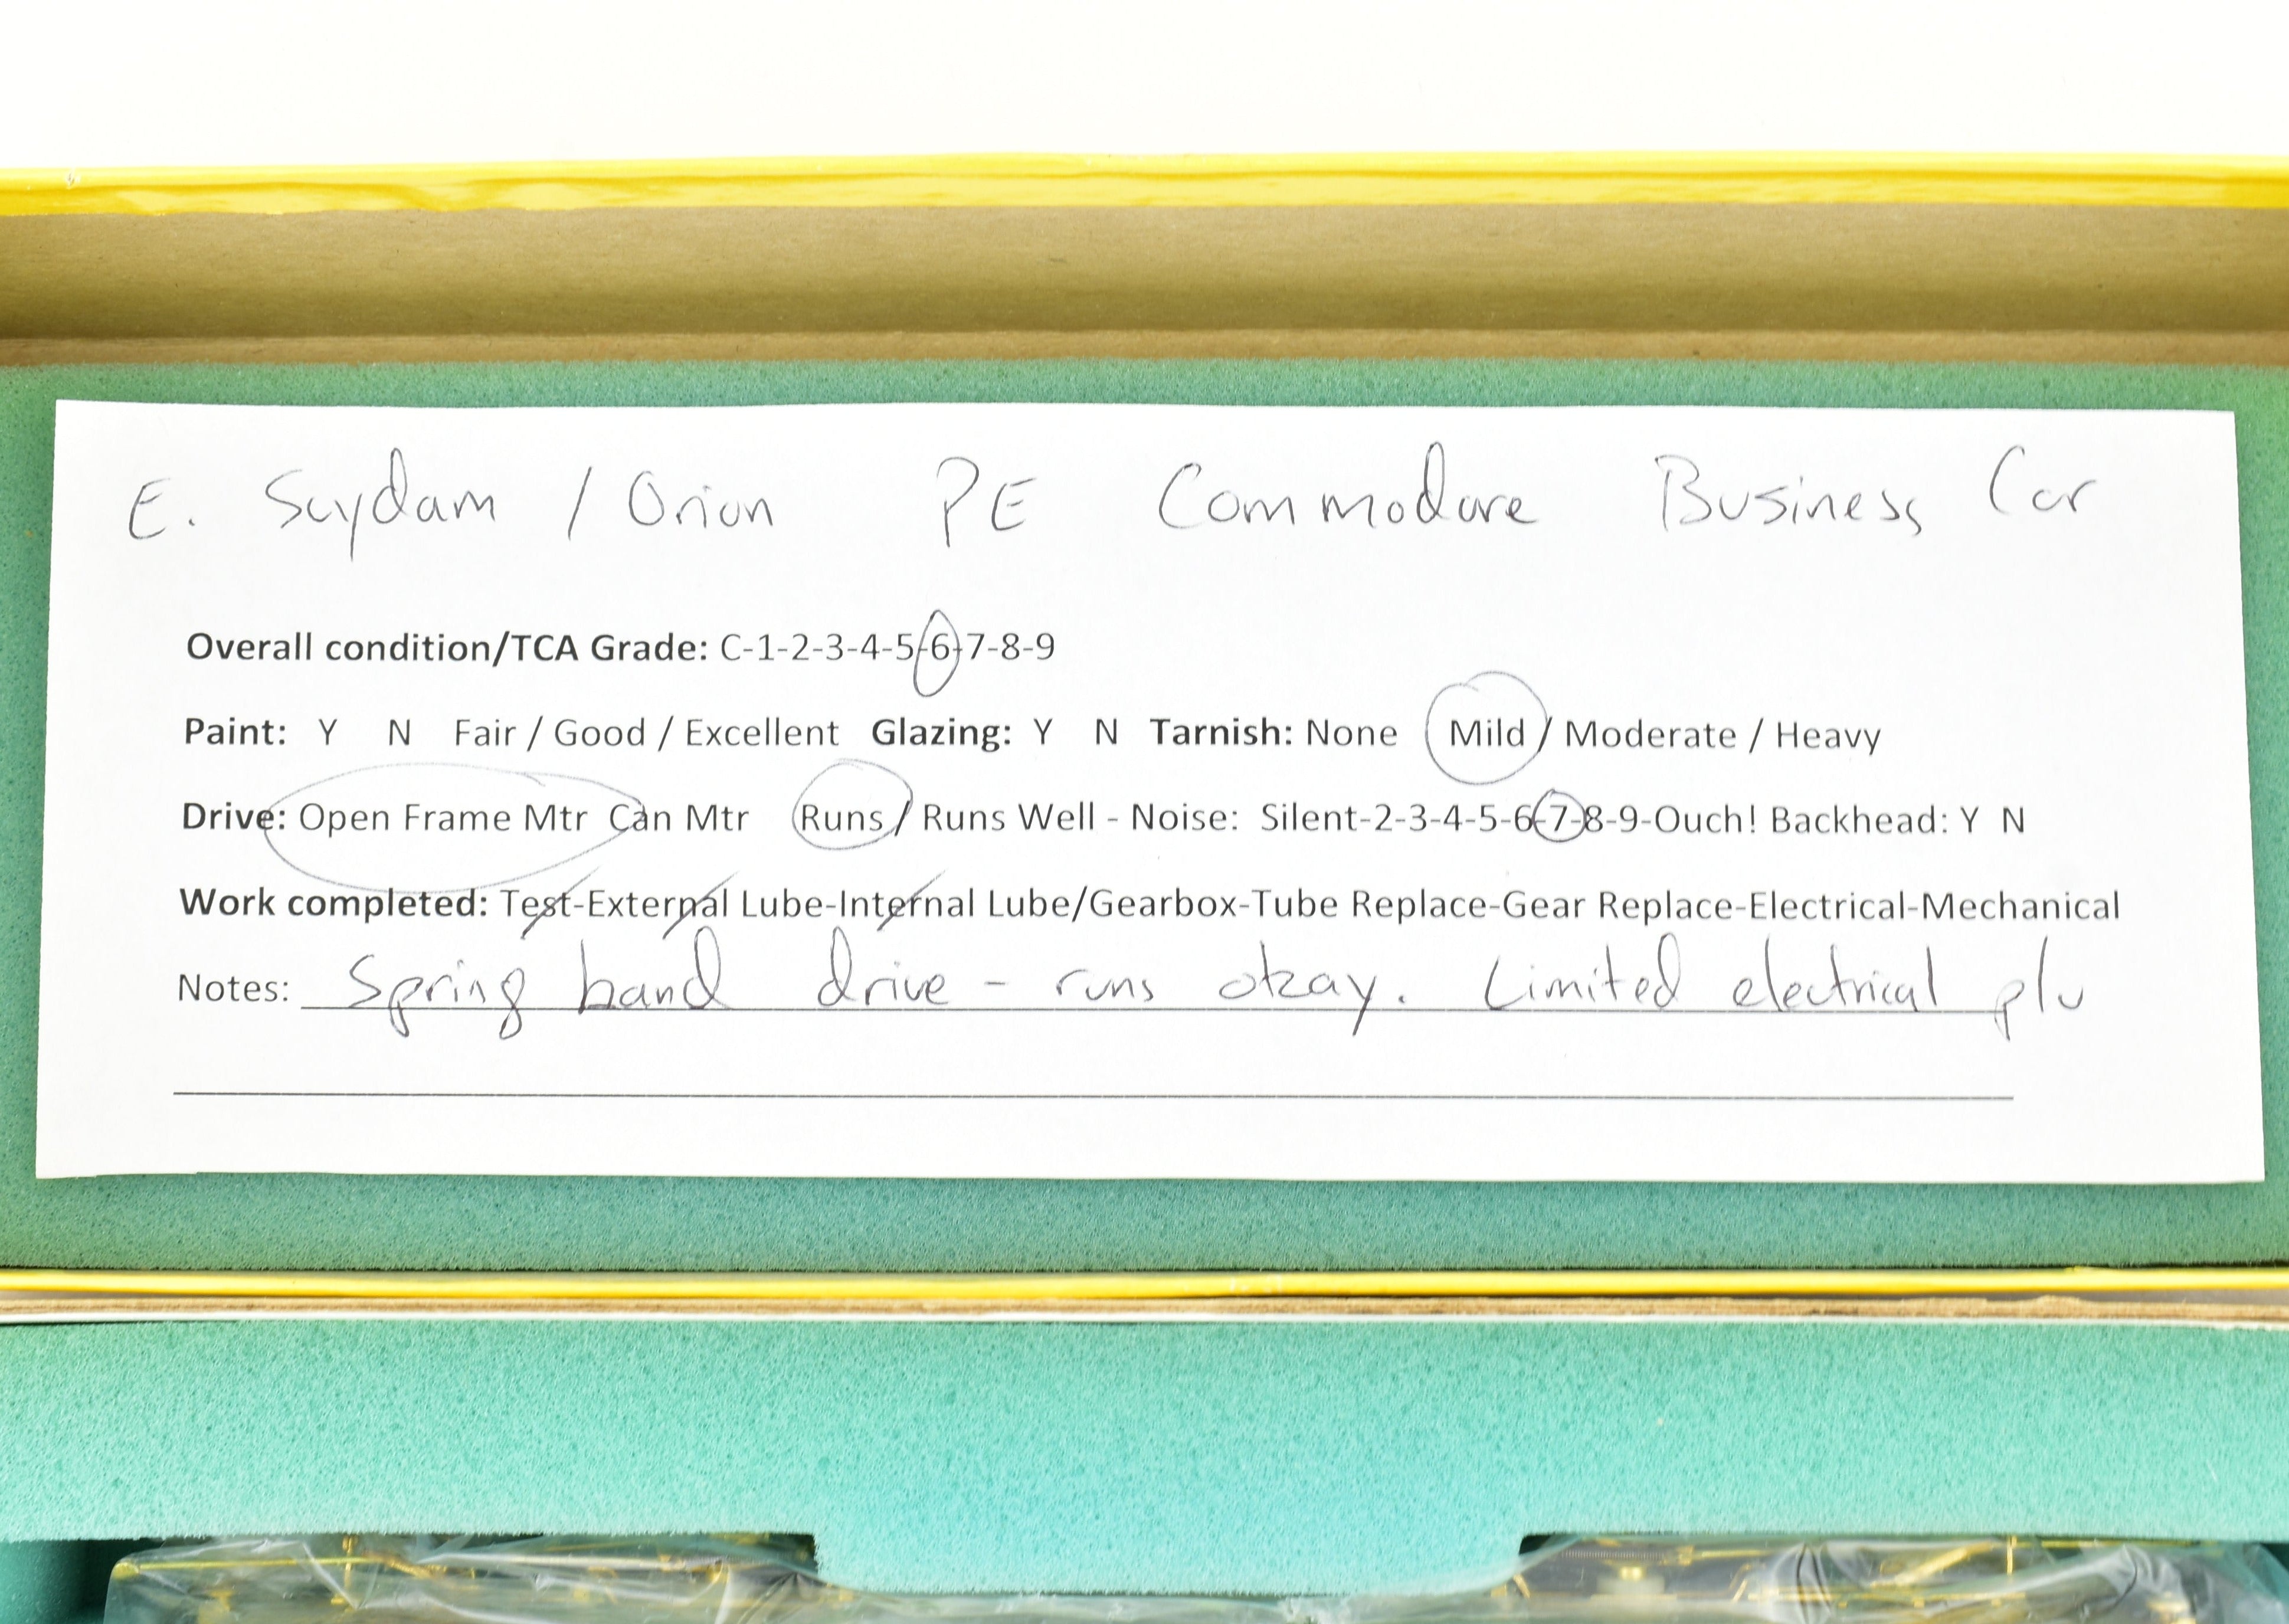 E. Suydam / Orion PE Commodore Business Car
Overall condition/TCA Grade: C-1-2-3-4-5-6-7-8-9
Paint: Y N Fair / Good / Excellent Glazing: Y N Tarnish: None Mild / Moderate / Heavy
Drive: Open Frame Mtr Can Mtr Runs / Runs Well - Noise: Silent-2-3-4-5-6-7-8-9-Ouch! Backhead: Y N
Work completed: Test-External Lube-Internal Lube/Gearbox-Tube Replace-Gear Replace-Electrical-Mechanical
Notes: Spring band drive - runs okay. Limited electrical plu